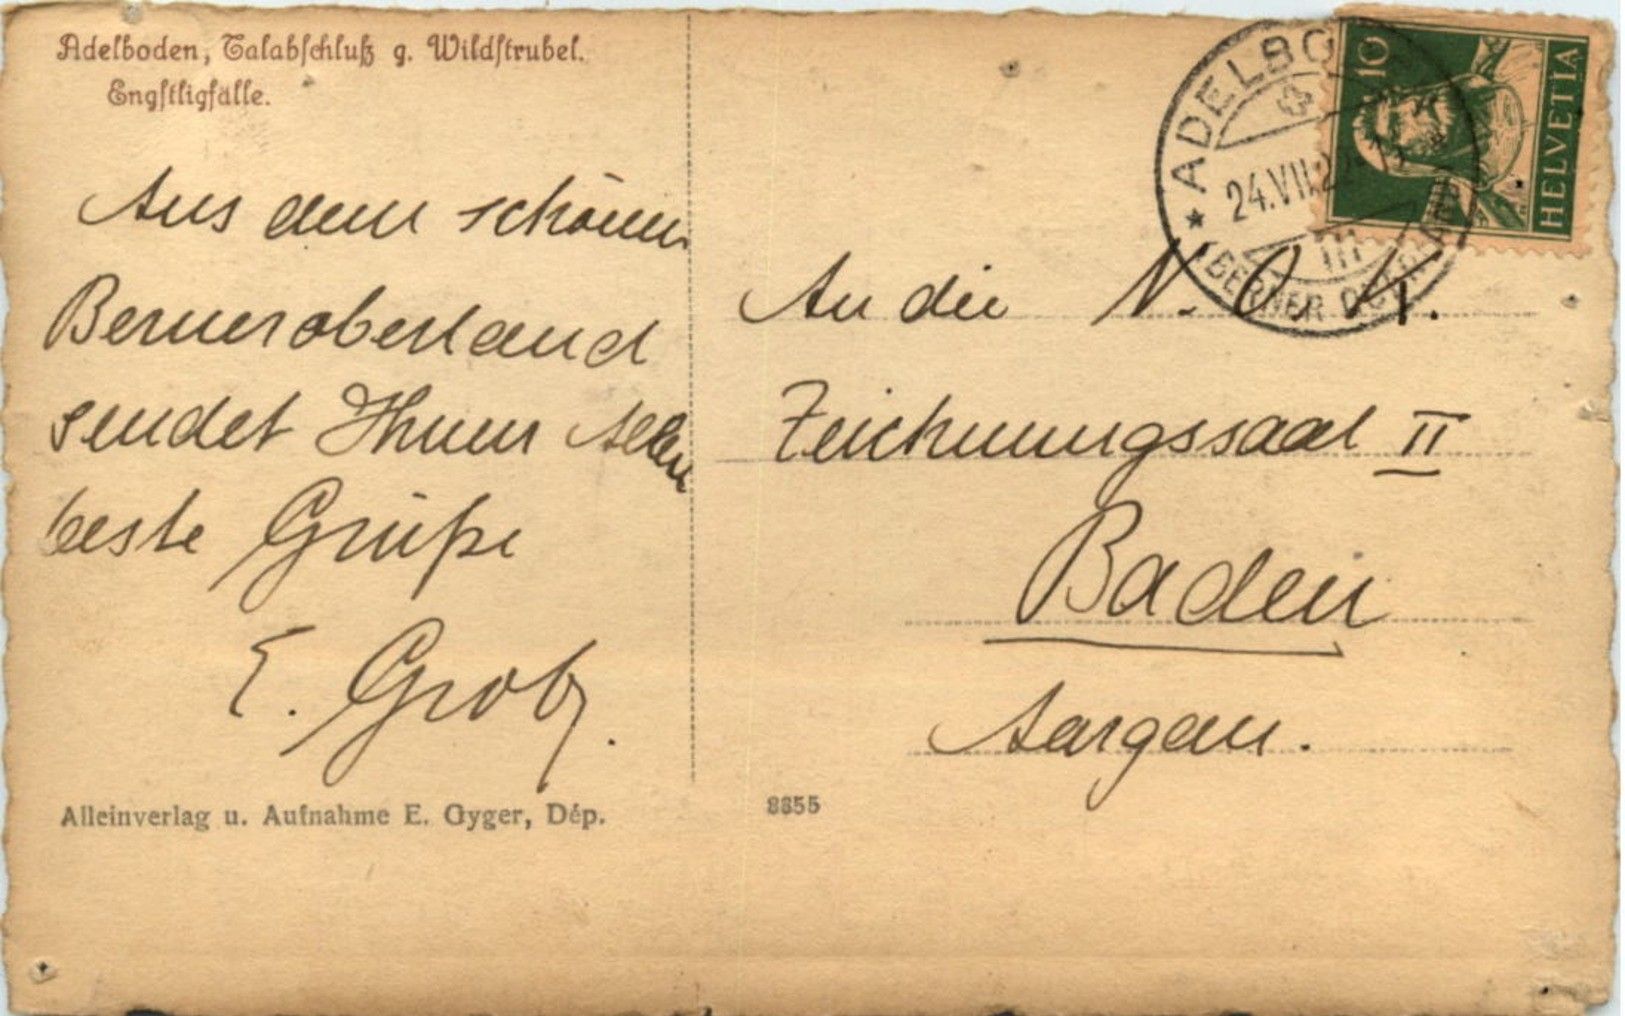 Adelboden, Talabschluß g. Wildstrubel.
Engstligfälle.
Aus dem schönen
Berneroberland
sendet Ihnen Allen
beste Grüße
E. Grob.
Alleinverlag u. Aufnahme E. Gyger, Dép.
8855
ADELBO
24.VII.2
III
BERNER OBERLAND
10
HELVETIA
An die N. O. K.
Zeichnungssaal II
Baden
Aargau.